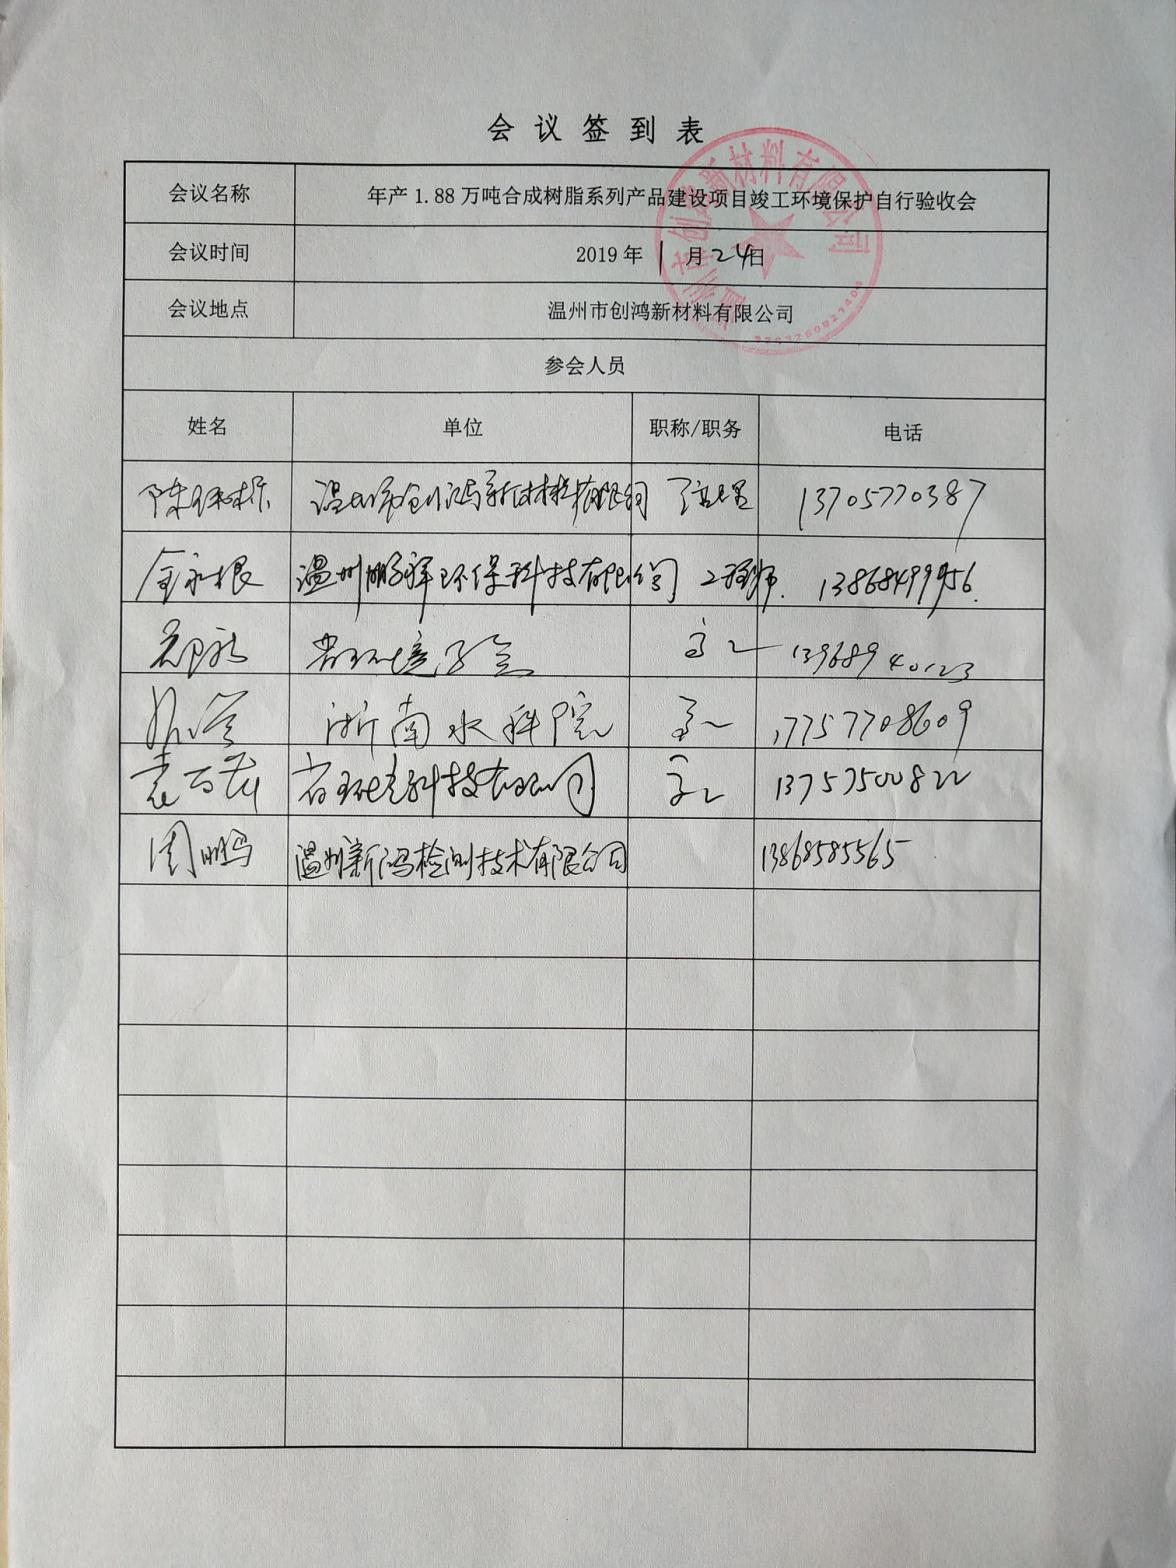 会议签到表
会议名称 年产1.88万吨合成树脂系列产品建设项目竣工环境保护自行验收会
会议时间 2019年1月24日
会议地点 温州市创鸿新材料有限公司
参会人员
姓名 单位 职称/职务 电话
温州市创鸿新材料有限公司 总经理 13705770387
金永根 温州鹏辉环保科技有限公司 工程师. 13868499956.
省环境学会 高工 13968940123
浙南水科院 高工 17757708609
袁 高工 13757500822
周鹏 温州新鸿检测技术有限公司 13868585565